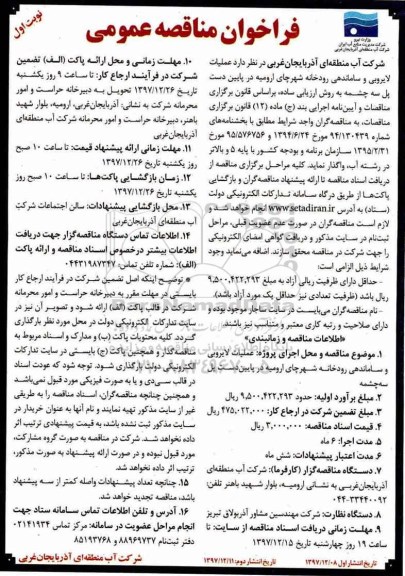 نوبت اول
فراخوان مناقصه عمومی
وزارت نیرو
شرکت مدیریت منابع آب ایران
شرکت آب منطقه‌ای آذربایجان غربی
شرکت آب منطقه‌ای آذربایجان‌غربی در نظر دارد عملیات
لایروبی و ساماندهی رودخانه شهرچای ارومیه در پایین دست
پل سه چشمه به روش ارزیابی ساده، براساس قانون برگزاری
مناقصات و آیین‌نامه اجرایی بند (ج) ماده (۱۲) قانون برگزاری
مناقصات، به مناقصه‌گران واجد شرایط مطابق با بخشنامه‌های
شماره ۹۴/۱۳۰۴۳۹ مورخ ۱۳۹۴/۶/۲۴ و ۹۵/۵۷۶۷۵۶ مورخ
۱۳۹۵/۲/۳۱ سازمان برنامه و بودجه کشور با پایه ۵ و بالاتر
در رشته آب، واگذار نماید. کلیه مراحل برگزاری مناقصه از
دریافت اسناد مناقصه تا ارائه پیشنهاد مناقصه‌گران و بازگشایی
پاکت‌ها از طریق درگاه سامانه تدارکات الکترونیکی دولت
(ستاد) به آدرس www.setadiran.ir انجام خواهد شد و
لازم است مناقصه‌گران در صورت عدم عضویت قبلی، مراحل
ثبت‌نام در سایت مذکور و دریافت گواهی امضای الکترونیکی
را جهت شرکت در مناقصه محقق سازند. اضافه می‌نماید وجود
شرایط ذیل الزامی است:
- حداقل دارای ظرفیت ریالی آزاد به مبلغ ۹,۵۰۰,۴۲۲,۲۹۳
ریال باشد (ظرفیت تعدادی نیز حداقل یک مورد آزاد باشد).
- نام مناقصه‌گران می‌بایست در سایت ساجار موجود بوده و
دارای صلاحیت و رتبه کاری معتبر و متناسب نیز باشند.
«اطلاعات مناقصه و زمانبندی»
۱. موضوع مناقصه و محل اجرای پروژه: عملیات لایروبی
و ساماندهی رودخانه شهرچای ارومیه در پایین‌دست پل
سه‌چشمه
۲. مبلغ برآورد اولیه: حدود ۹,۵۰۰,۴۲۲,۲۹۳ ریال
۳. مبلغ تضمین شرکت در ارجاع کار: ۴۷۵,۰۲۲,۰۰۰ ریال
۴. قیمت اسناد مناقصه: ۳,۰۰۰,۰۰۰ ریال
۵. مدت اجرا: ۶ ماه
۶. مدت اعتبار پیشنهادات: شش ماه
۷. دستگاه مناقصه‌گزار (کارفرما): شرکت آب منطقه‌ای
آذربایجان‌غربی به نشانی ارومیه، بلوار شهید باهنر تلفن:
۰۴۴-۳۳۴۴۰۰۹۲
۸. دستگاه نظارت: شرکت مهندسین مشاور آذربولاق تبریز
۹. مهلت زمانی دریافت اسناد مناقصه از سایت: تا
ساعت ۱۹ روز چهارشنبه تاریخ ۱۳۹۷/۱۲/۱۵
۱۰. مهلت زمانی و محل ارائه پاکت (الف) تضمین
شرکت در فرآیند ارجاع کار: تا ساعت ۹ روز یکشنبه
تاریخ ۱۳۹۷/۱۲/۲۶ تحویل به دبیرخانه حراست و امور
محرمانه شرکت به نشانی: آذربایجان‌غربی، ارومیه، بلوار شهید
باهنر، دبیرخانه حراست و امور محرمانه شرکت آب منطقه‌ای
آذربایجان‌غربی
۱۱. مهلت زمانی ارائه پیشنهاد قیمت: تا ساعت ۱۰ صبح
روز یکشنبه تاریخ ۱۳۹۷/۱۲/۲۶
۱۲. زمان بازگشایی پاکت‌ها: تا ساعت ۱۰ صبح روز
یکشنبه تاریخ ۱۳۹۷/۱۲/۲۶
۱۳. محل بازگشایی پیشنهادات: سالن اجتماعات شرکت
آب منطقه‌ای آذربایجان‌غربی
۱۴. اطلاعات تماس دستگاه مناقصه‌گزار جهت دریافت
اطلاعات بیشتر درخصوص اسناد مناقصه و ارائه پاکت
(الف): شماره تلفن تماس: ۰۴۴۳۱۹۸۷۳۴۷
* توضیح اینکه اصل تضمین شرکت در فرآیند ارجاع کار
بایستی در مهلت مقرر به دبیرخانه حراست و امور محرمانه
شرکت در قالب پاکت (الف) ارائه شود و تصویر آن نیز در
سایت تدارکات الکترونیکی دولت در محل مورد نظر بارگذاری
گردد. کلیه محتویات پاکت (ب) و مدارک و اسناد مربوط به
مناقصه‌گذار و همچنین پاکت (ج) بایستی در سایت تدارکات
الکترونیکی دولت بارگذاری شود. توجه شود که عودت اسناد
در قالب سی‌دی و یا به صورت فیزیکی مورد قبول نمی‌باشد
و همچنین چنانچه مناقصه‌گران، اسناد مناقصه را به طریقی
غیر از سایت مذکور تهیه نمایند و نام آنها به عنوان خریدار در
سایت مذکور ثبت نشده باشد، به قیمت پیشنهادی ترتیب اثر
داده نخواهد شد. شرکت در مناقصه به صورت گروه مشارکت،
مورد قبول نبوده و در صورت ارائه پیشنهاد به صورت مذکور،
ترتیب اثر داده نخواهد شد.
۱۵. چنانچه تعداد پیشنهادات واصله کمتر از سه پیشنهاد
باشد، مناقصه تجدید خواهد شد.
۱۶. آدرس و تلفن اطلاعات تماس سامانه ستاد جهت
انجام مراحل عضویت در سامانه: مرکز تماس ۰۲۱۴۱۹۳۴
دفتر ثبت‌نام ۸۸۹۶۹۷۳۷ و ۸۵۱۹۳۷۶۸
شرکت آب منطقه‌ای آذربایجان‌غربی
تاریخ انتشار اول: ۱۳۹۷/۱۲/۰۸ تاریخ انتشار دوم: ۱۳۹۷/۱۲/۱۱